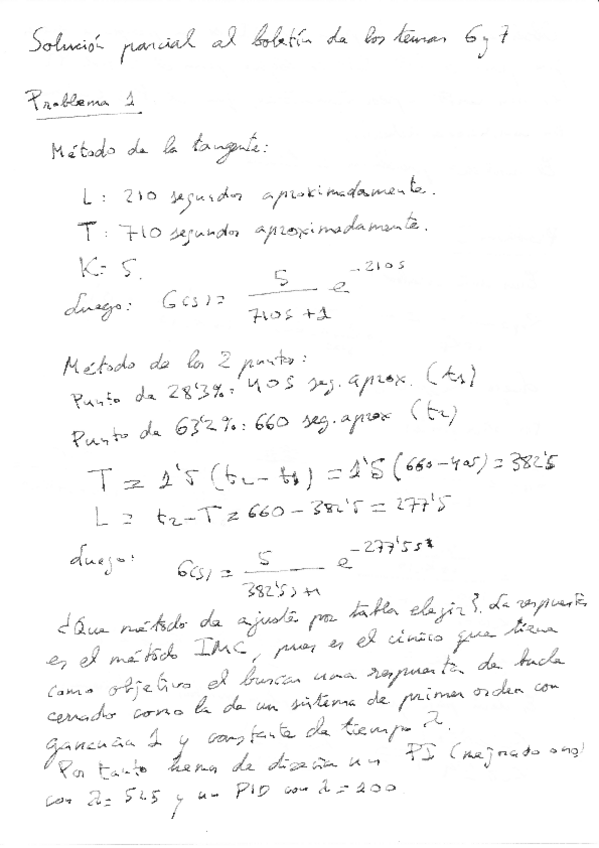 Solución parcial al boletín de los temas 6 y 7
Problema 1
Método de la tangente:
L: 210 segundos aproximadamente.
T: 710 segundos aproximadamente.
K= 5.
Luego: G(s)= 5 / 710s+1 e^-210s
Método de los 2 puntos:
Punto de 28'3%: 405 seg. aprox. (t1)
Punto de 63'2%: 660 seg. aprox (t2)
T = 1'5 (t2-t1) = 1'5 (660-405) = 382'5
L = t2-T = 660-382'5 = 277'5
Luego: G(s) = 5 / 382'5s+1 e^-277'5s
¿Que método de ajuste por tabla elegir?. La respuesta
es el método IMC, pues es el único que tiene
como objetivo el buscar una respuesta de bucle
cerrado como la de un sistema de primer orden con
ganancia 1 y constante de tiempo λ.
Por tanto hemos de diseñar un PI (mejorado o no)
con λ= 545 y un PID con λ=200